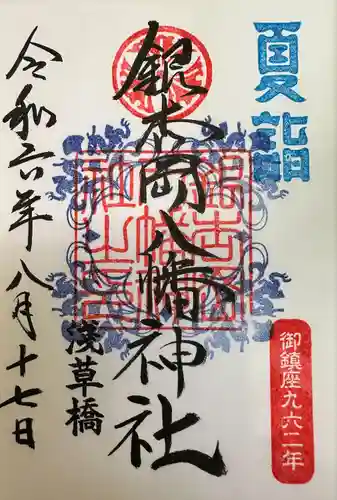 夏詣
御鎮座九六二年
銀杏岡八幡神社
浅草橋
令和六年八月十七日